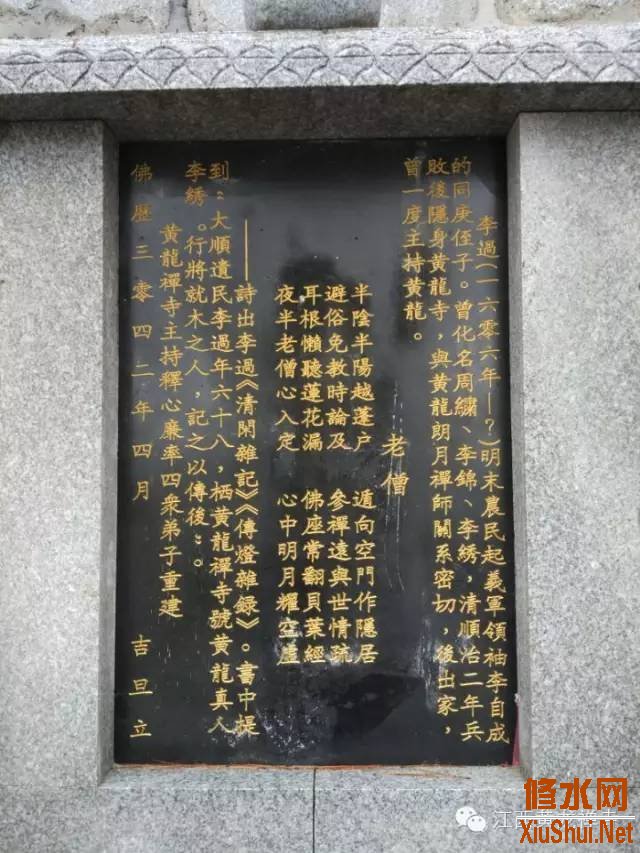 李過(一六零六年——?)明末農民起義軍領袖李自成
的同庚侄子。曾化名周繡、李錦、李綉,清順治二年兵
敗後隱身黃龍寺,與黃龍朗月禪師關系密切,後出家,
曾一度主持黃龍。
老僧
半陰半陽越蓬户 遁向空門作隱居
避俗免教時論及 參禪遠與世情疏
耳根懶聽蓮花漏 佛座常翻貝葉經
夜半老僧心入定 心中明月耀空虛
——詩出李過《清閑雜記》《傳燈雜録》。書中提
到:"大順遺民李過年六十八,栖黃龍禪寺號黃龍真人
李綉。行將就木之人,記之以傳後"。
黃龍禪寺主持釋心廉率四衆弟子重建
佛歷三零四二年四月 吉旦立
修水网
XiuShui.Net